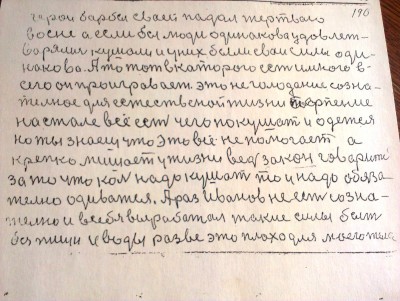 190
герои борбы своей падал жертваю
восне а если вся люди одинакова удовлет-
варялис кушали и у них были сваи силы оди-
накова. А то тот в каторого ест многого в-
сего он проигравает. это не голодание созна-
телное для естественой жизни терпение
настале всё ест чего покушат и одется
но ты знаеш что это всё не помогает а
крепко мишает у жизни вед закон гаварит
за то что кол надо кушат то и надо обяза
телно одиватся. А раз Иванов не ест созна-
телно и в себя выработал такие силы быт
без пищи и воды разве это плохо для моего тела